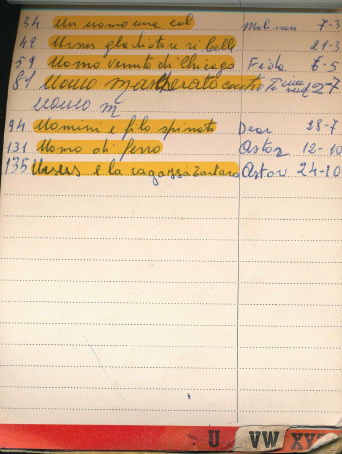 34 Un uomo una col 7-3
42 Ursus gladiatore ribelle 21-3
59 Uomo venuto di Chicago 6-5
81 Uomo mascherato contro 2-7
uomo m
94 Uomini e filo spinato 28-7
131 Uomo di ferro Astor 12-10
135 Ursus e la ragazza tartara Astor 24-10
U VW XY